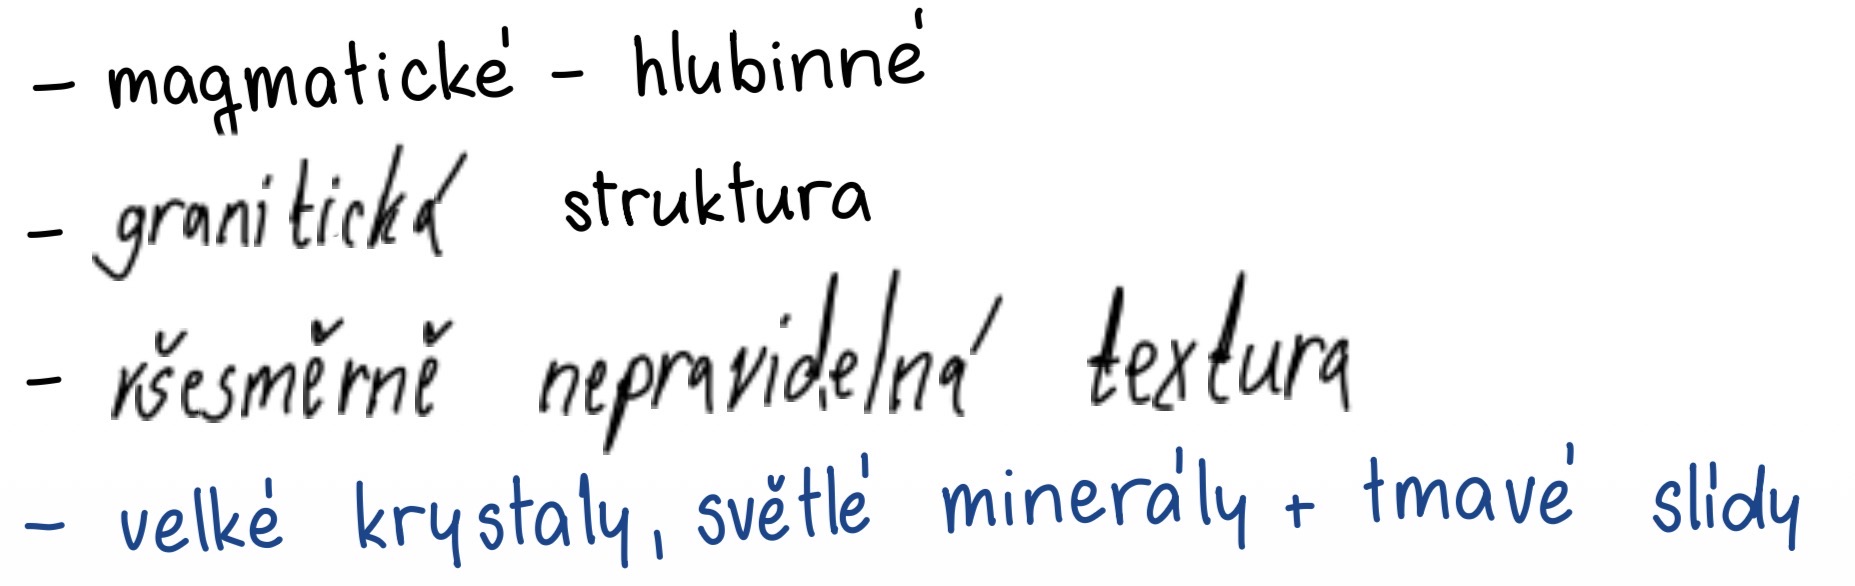 - magmatické - hlubinné
- granitická struktura
- všesměrně nepravidelná textura
- velké krystaly, světlé minerály + tmavé slídy